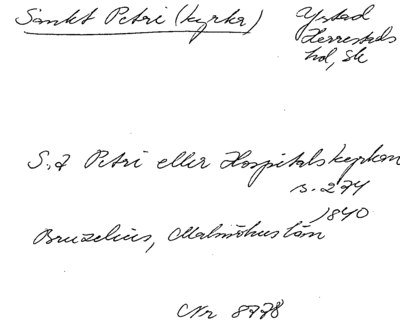 Sankt Petri (kyrka) Ystad
Herrestads
hd, Sk
S:t Petri eller Hospitalskyrkan
s. 274
1840
Bruzelius, Malmöhus län
Nr 8778